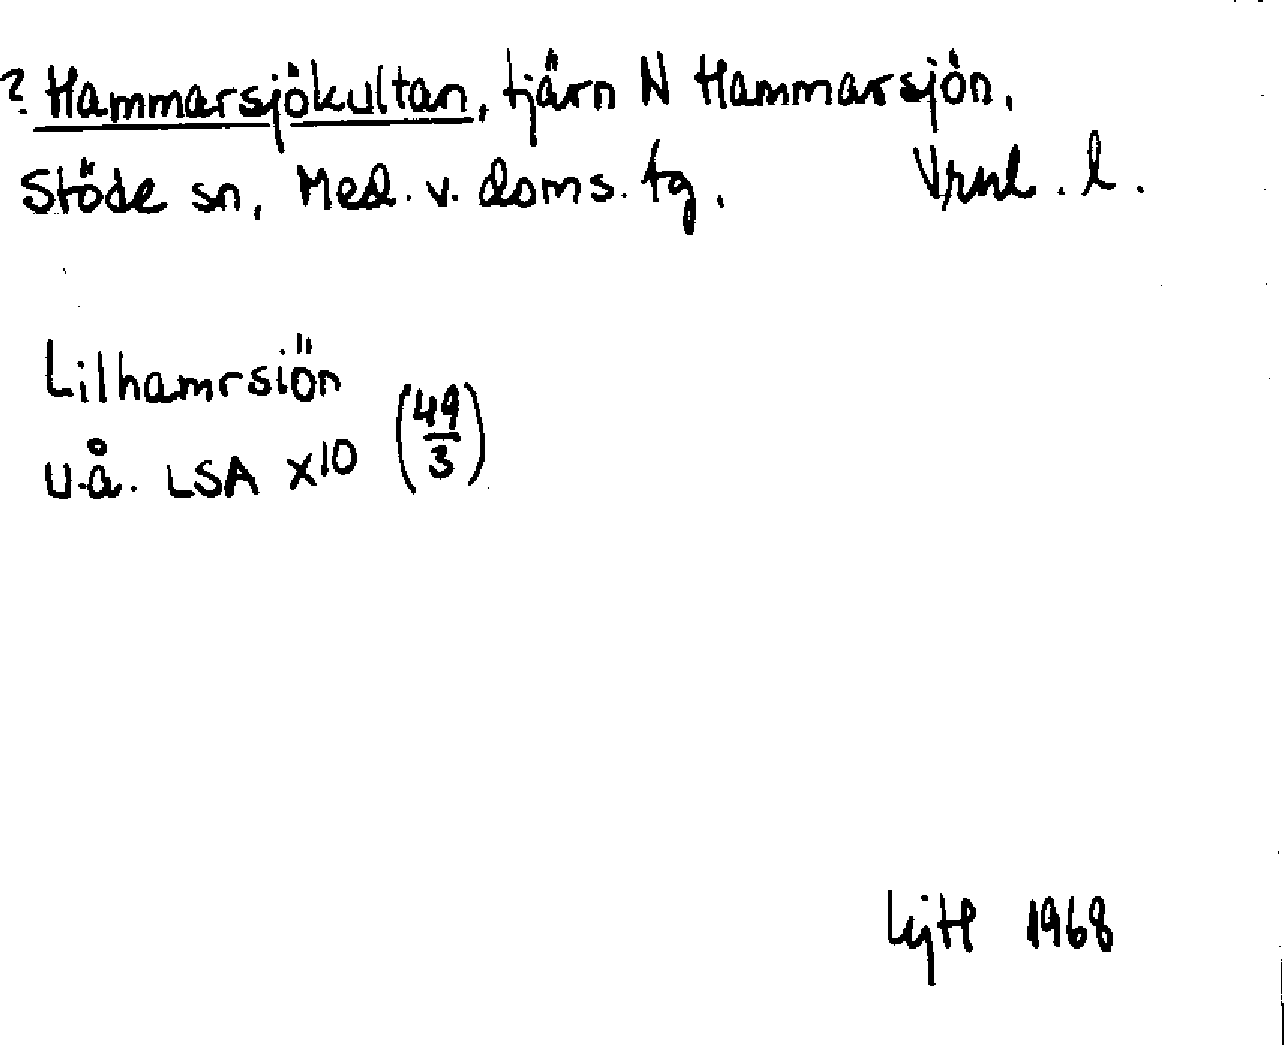 ? Hammarsjökultan, tjärn N Hammarsjön,
Stöde sn, Med. v. doms. tg. Vrnl. l.
Lilhamrsiön
u.å. LSA X10 (49/3)
1968